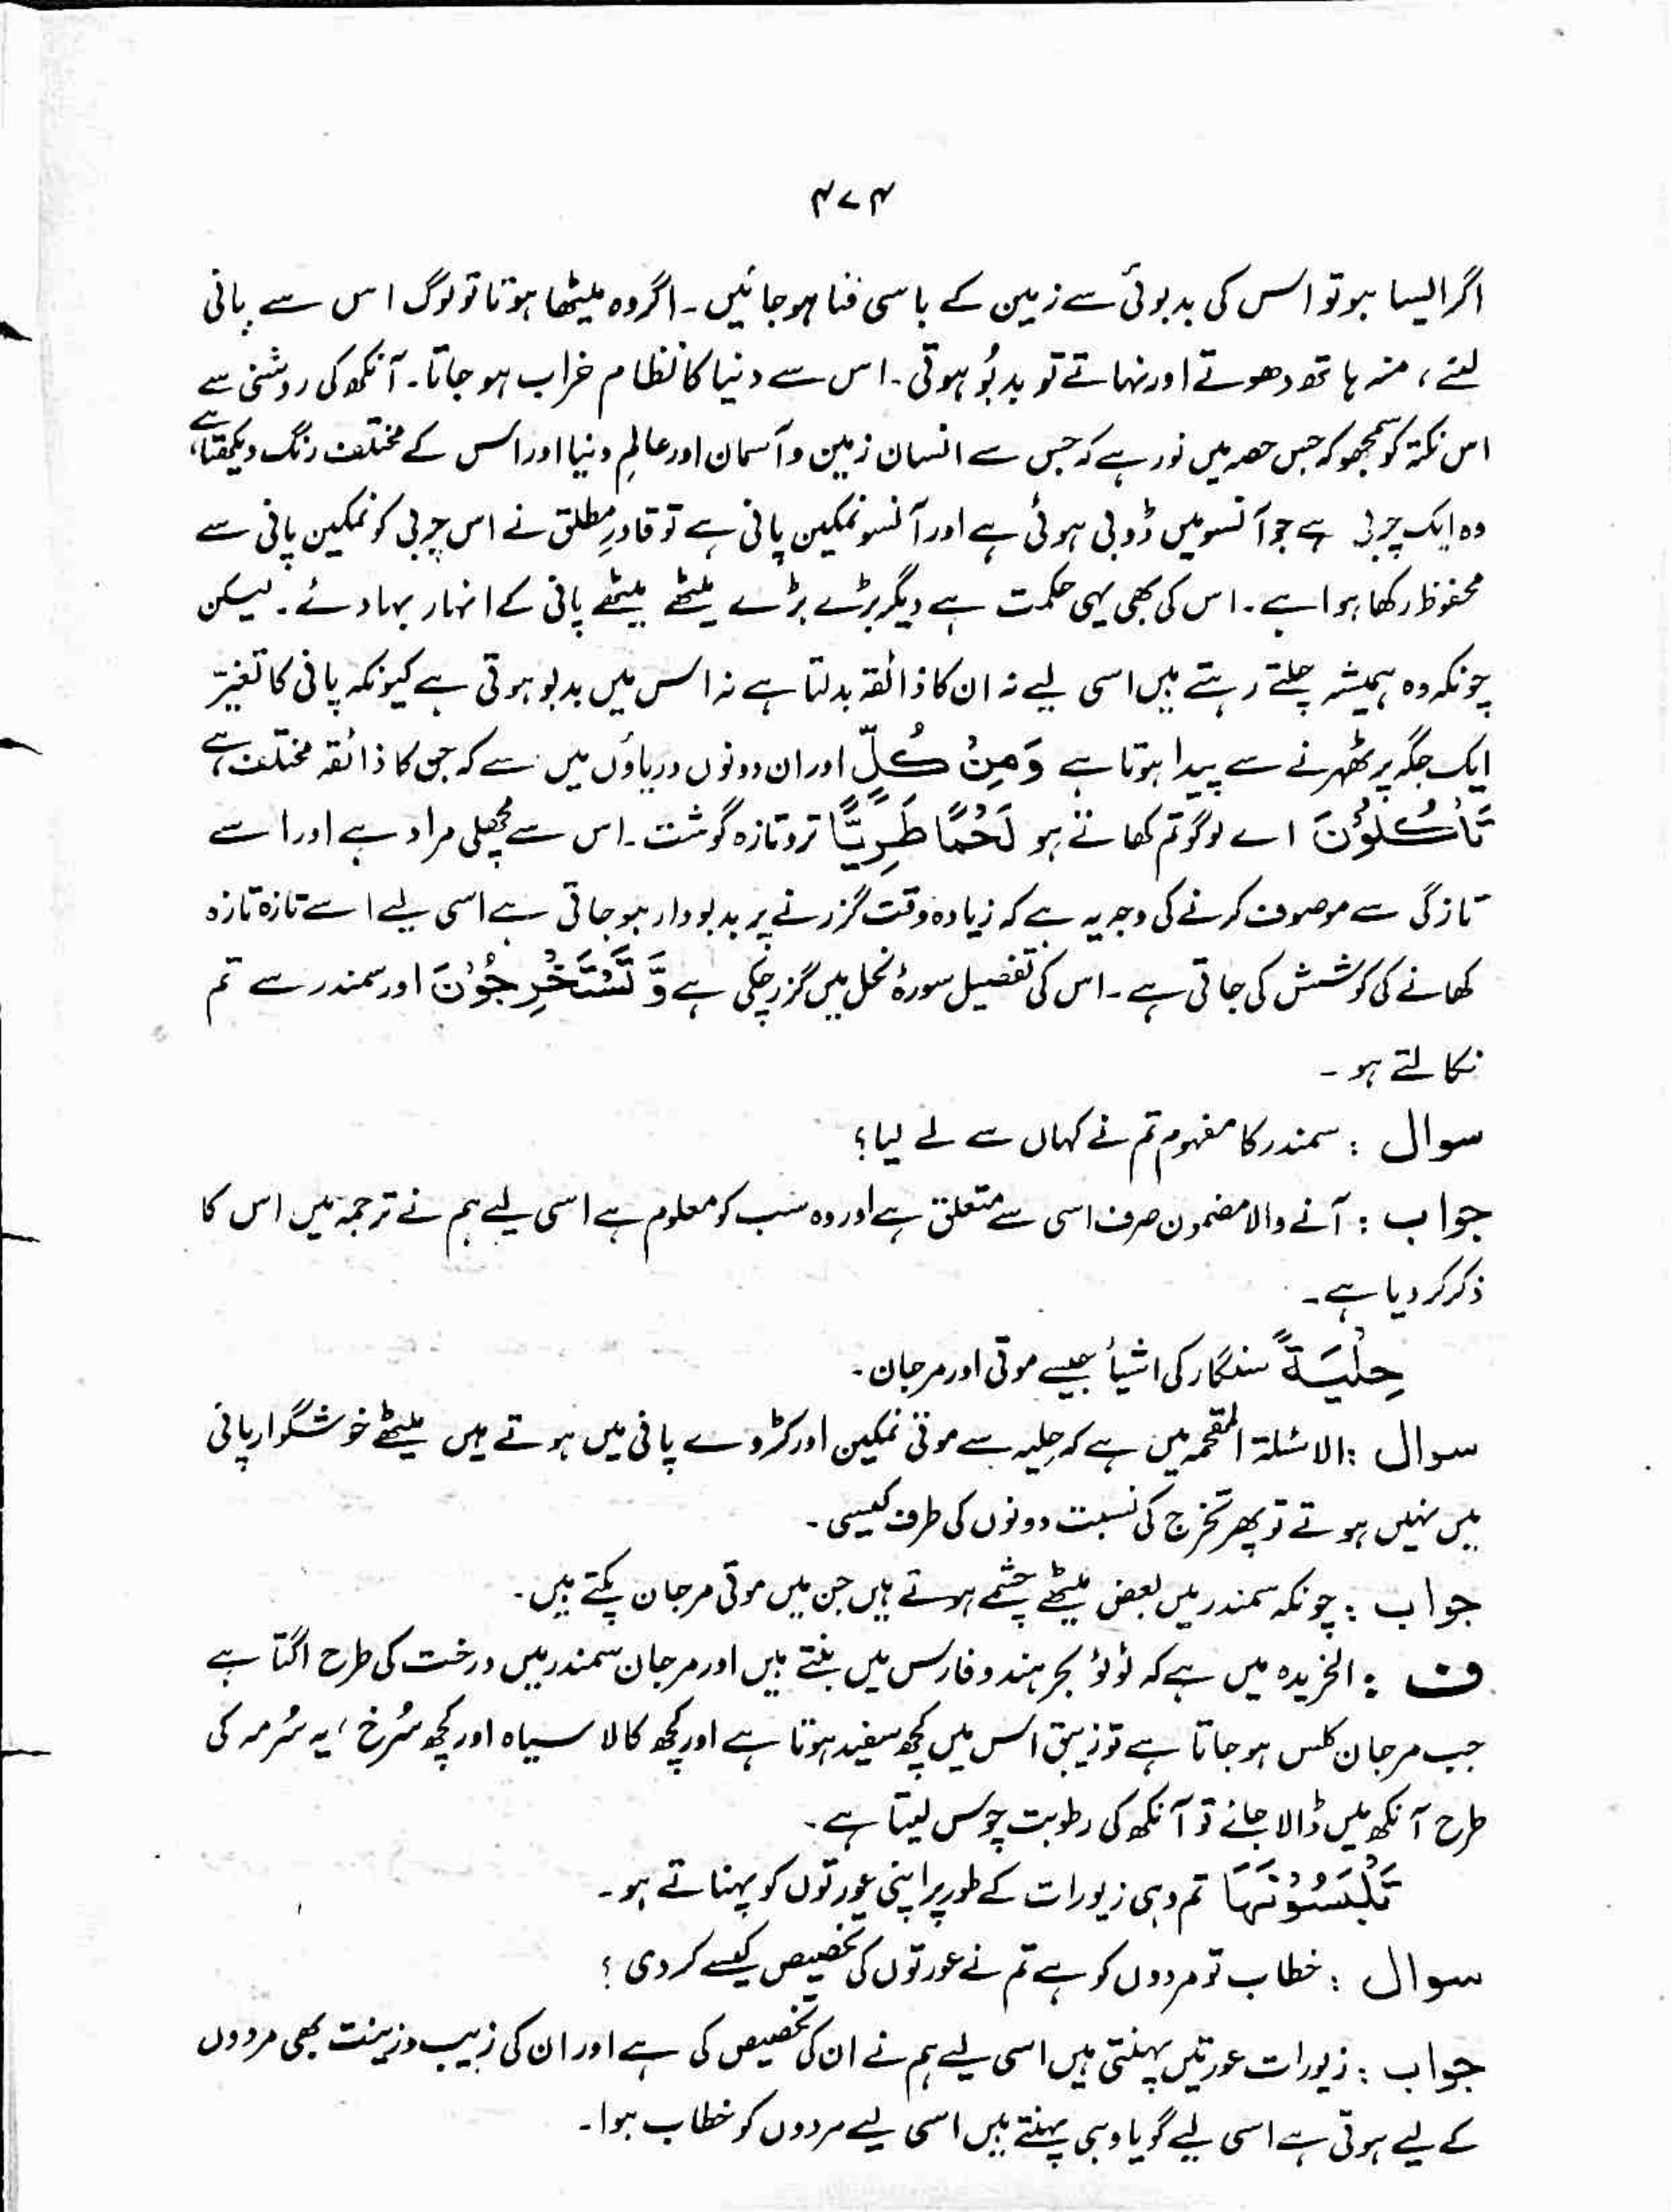 ۴۷۴
اگر ایسا ہو تو اس کی بدبوئی سے زمین کے باسی فنا ہو جائیں ۔ اگر وہ میٹھا ہوتا تو لوگ اس سے پانی
لئے ، منہ ہاتھ دھوتے اور نہاتے تو بدبُو ہوتی ۔ اس سے دنیا کا نظام خراب ہو جاتا ۔ آنکھ کی روشنی سے
اس نکتہ کو سمجھو کہ جس حصہ میں نور ہے کہ جس سے انسان زمین و آسمان اور عالمِ دنیا اور اس کے مختلف رنگ دیکھتا ہے،
وہ ایک چربی ہے جو آنسو میں ڈوبی ہوئی ہے اور آنسو نمکین پانی ہے تو قادرِ مطلق نے اس چربی کو نمکین پانی سے
محفوظ رکھا ہوا ہے ۔ اس کی بھی یہی حکمت ہے دیگر بڑے بڑے میٹھے میٹھے پانی کے انہار بہا دئے ۔ لیکن
چونکہ وہ ہمیشہ چلتے رہتے ہیں اسی لیے نہ ان کا ذائقہ بدلتا ہے نہ اس میں بدبو ہوتی ہے کیونکہ پانی کا تغیّر
ایک جگہ پر ٹھہرنے سے پیدا ہوتا ہے وَمِنْ كُلٍّ اور ان دونوں دریاؤں میں سے کہ جن کا ذائقہ مختلف ہے،
تَأْكُلُوْنَ اے لوگو تم کھاتے ہو لَحْمًا طَرِیًّا تروتازہ گوشت ۔ اس سے مچھلی مراد ہے اور اسے
تازگی سے موصوف کرنے کی وجہ یہ ہے کہ زیادہ وقت گزرنے پر بدبودار ہو جاتی ہے اسی لیے اسے تازہ تازہ
کھانے کی کوشش کی جاتی ہے ۔ اس کی تفصیل سورۂ نحل میں گزر چکی ہے وَّ تَسْتَخْرِجُوْنَ اور سمندر سے تم
نکالتے ہو ۔
سوال : سمندر کا مفہوم تم نے کہاں سے لے لیا؟
جواب : آنے والا مضمون صرف اسی سے متعلق ہے اور وہ سب کو معلوم ہے اسی لیے ہم نے ترجمہ میں اس کا
ذکر کر دیا ہے ۔
حِلْیَةً سنگار کی اشیأ جیسے موتی اور مرجان ۔
سوال : الاسئلۃ المقحمہ میں ہے کہ حِلیہ سے موتی نمکین اور کڑوے پانی میں ہوتے ہیں میٹھے خوشگوار پانی
میں نہیں ہوتے تو پھر تخرج کی نسبت دونوں کی طرف کیسی ۔
جواب : چونکہ سمندر میں بعض میٹھے چشمے ہوتے ہیں جن میں موتی مرجان پکتے ہیں ۔
ف : الخریدہ میں ہے کہ لؤلؤ بحر ہند و فارس میں بنتے ہیں اور مرجان سمندر میں درخت کی طرح اگتا ہے
جب مرجان کلس ہو جاتا ہے تو زیبق اس میں کچھ سفید ہوتا ہے اور کچھ کالا سیاہ اور کچھ سُرخ ، یہ سُرمہ کی
طرح آنکھ میں ڈالا جائے تو آنکھ کی رطوبت چوس لیتا ہے ۔
تَلْبَسُوْنَهَا تم وہی زیورات کے طور پر اپنی عورتوں کو پہناتے ہو ۔
سوال : خطاب تو مردوں کو ہے تم نے عورتوں کی تخصیص کیسے کر دی ؟
جواب : زیورات عورتیں پہنتی ہیں اسی لیے ہم نے ان کی تخصیص کی ہے اور ان کی زیب و زینت بھی مردوں
کے لیے ہوتی ہے اسی لیے گویا وہی پہنتے ہیں اسی لیے مردوں کو خطاب ہوا ۔